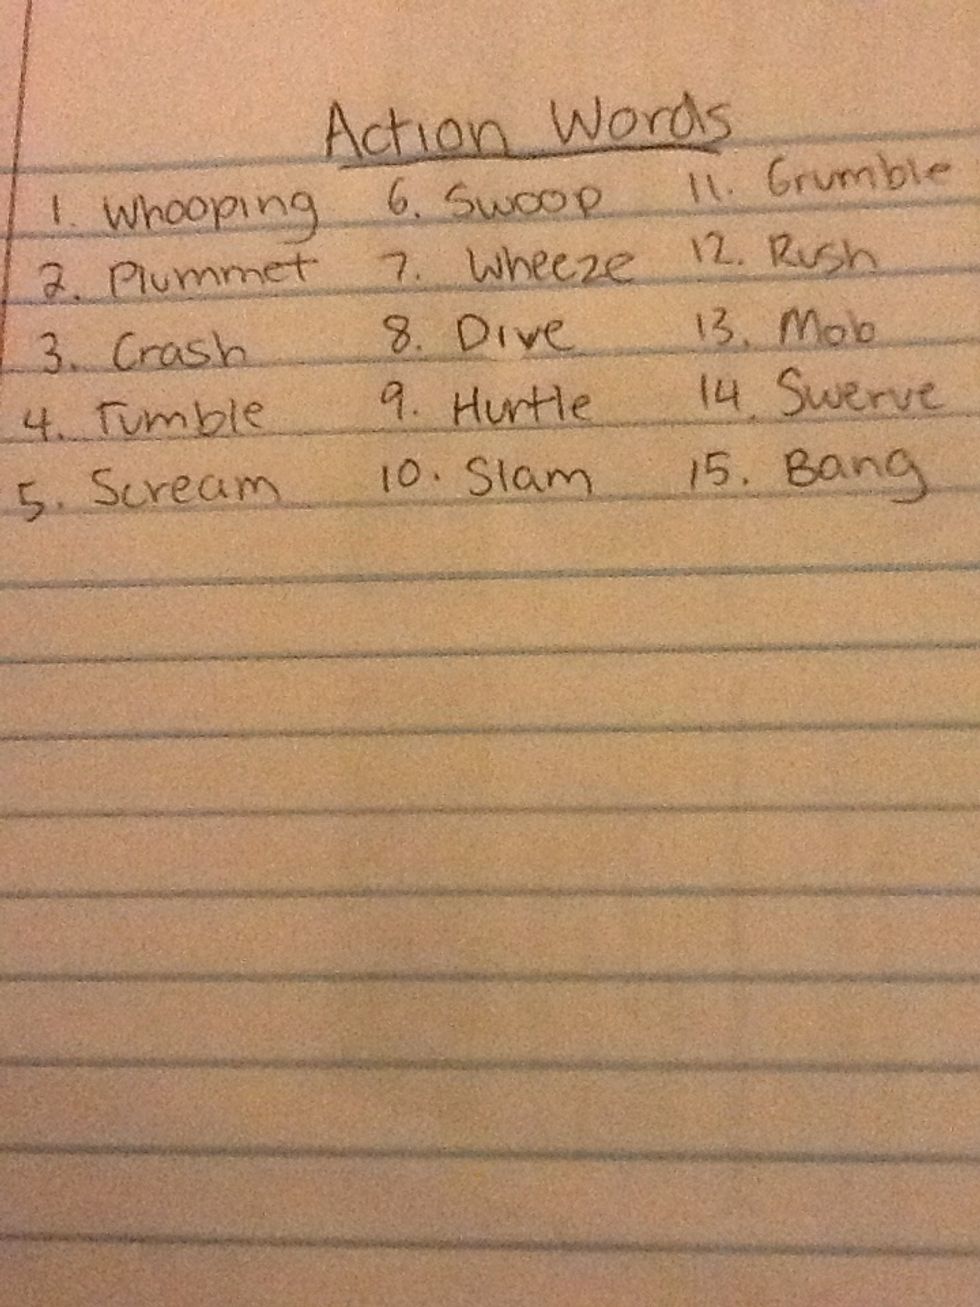 Action Words
1. Whooping 6. Swoop 11. Grumble
2. Plummet 7. Wheeze 12. Rush
3. Crash 8. Dive 13. Mob
4. Tumble 9. Hurtle 14. Swerve
5. Scream 10. Slam 15. Bang